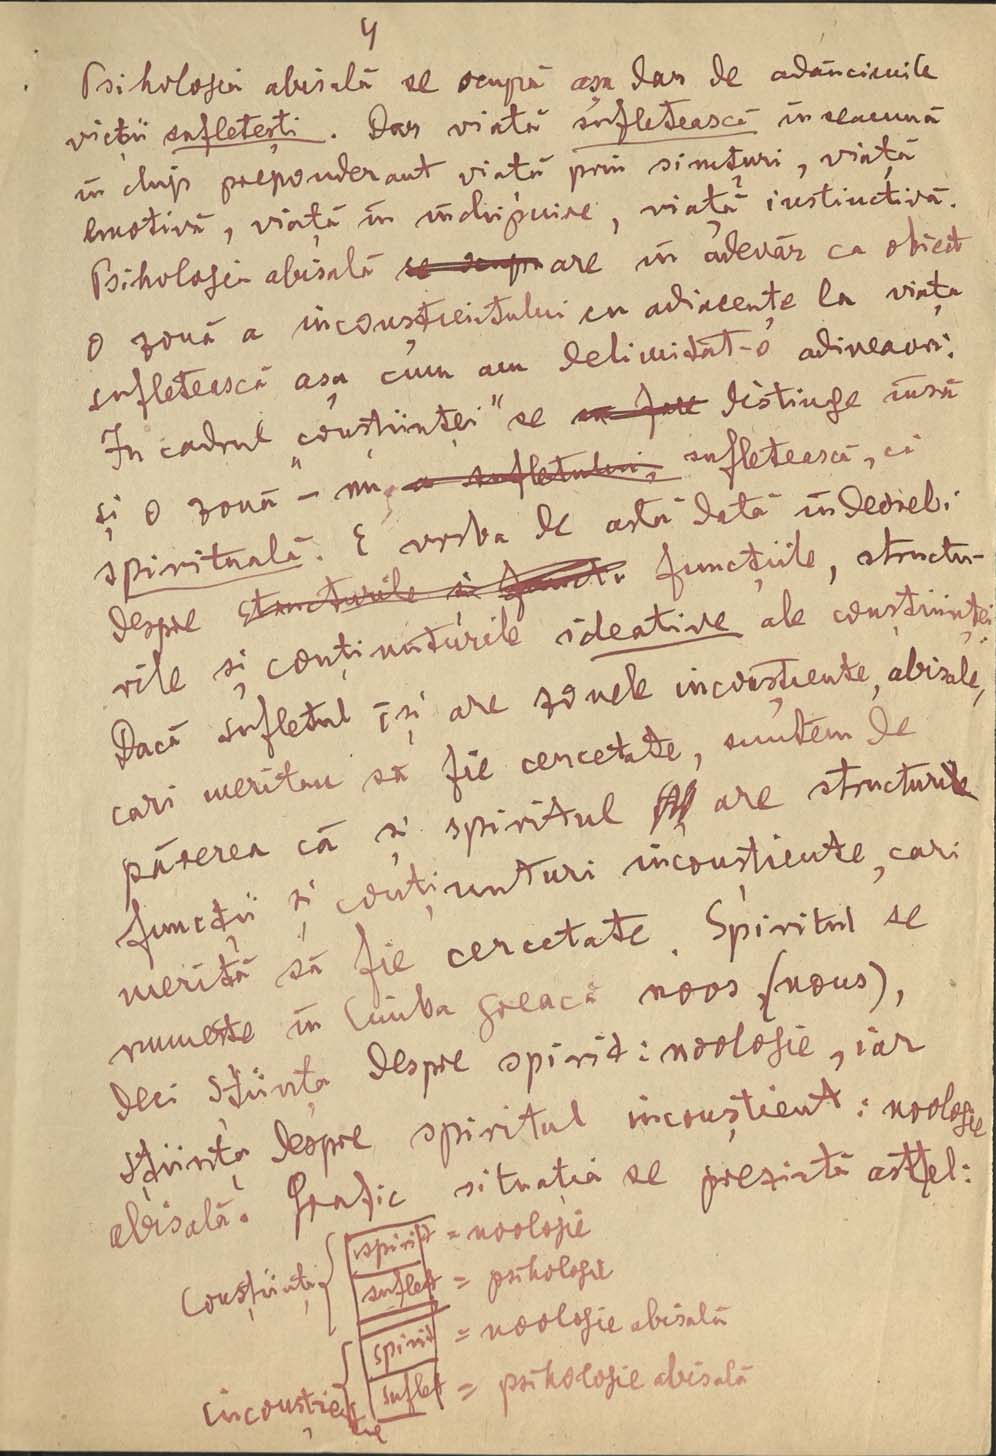 4
Psihologia abisală se ocupă așa dar de adâncimile
vieții sufletești. Dar viață sufletească înseamnă
în chip preponderant viață prin simțuri, viață
emotivă, viață în închipuire, viață instinctivă.
Psihologia abisală se ocupă are în adevăr ca obiect
o zonă a inconștientului cu adiacențe la viața
sufletească așa cum am delimitat-o adineaori.
In cadrul „conștiinței” se distinge însă
și o zonă - nu a sufletului, sufletească, ci
spirituală. E vorba de astă dată îndeosebi
despre structurile și funcți funcțiile, structu-
rile și conținuturile ideative ale conștiinței.
Dacă sufletul își are zonele inconștiente, abisale,
cari meritau să fie cercetate, suntem de
părerea că și spiritul are structurile
funcții și conținunturi inconștiente, cari
merită să fie cercetate. Spiritul se
numește în limba greacă noos (nous),
deci știința despre spirit: noologie, iar
știința despre spiritul inconștient: noologie
abisală. Grafic situația se prezintă astfel:
spirit = noologie
Conștiință { suflet = psihologie
spirit = noologie abisală
inconștiență { suflet = psihologie abisală